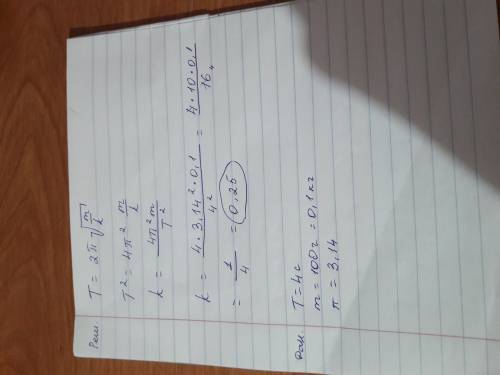 Реш.
T = 2π√(m/k)
T² = 4π² m/k
k = 4π²m/T²
k = 4 · 3,14² · 0,1/4² = 4 · 10 · 0,1/16 4
= 1/4 = 0,25
Дан.
T = 4c
m = 100г = 0,1 кг
π = 3,14